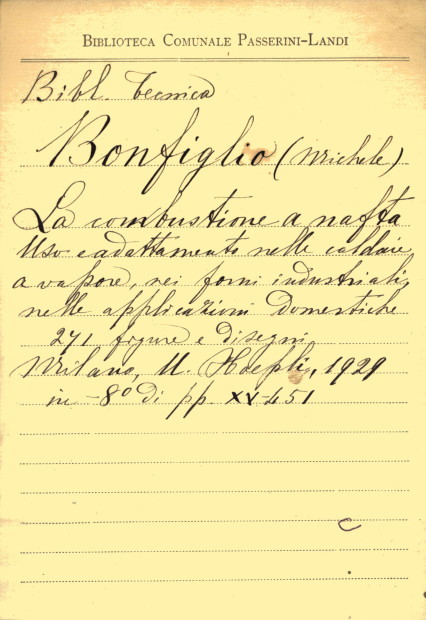 BIBLIOTECA COMUNALE PASSERINI-LANDI
Bibl. Tecnica
Bonfiglio (Michele)
La combustione a nafta
Uso e adattamento nelle caldaie
a vapore, nei forni industriali,
nelle applicazioni domestiche
271 figure e disegni
Milano, U. Hoepli, 1929
in -8º di pp. XV-451